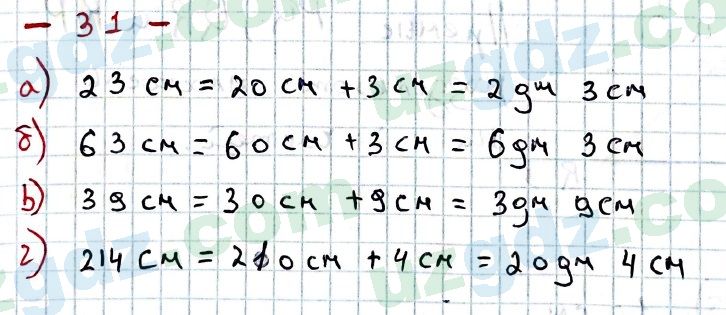 - 31 -
а) 23 см = 20 см + 3 см = 2 дм 3 см
б) 63 см = 60 см + 3 см = 6 дм 3 см
в) 39 см = 30 см + 9 см = 3 дм 9 см
г) 214 см = 210 см + 4 см = 20 дм 4 см